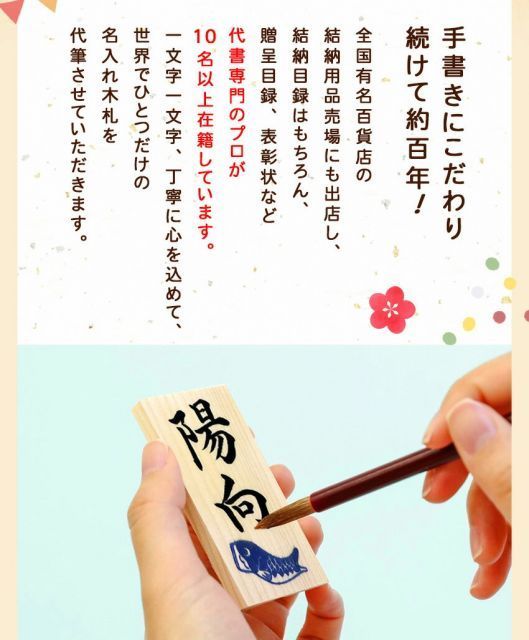 手書きにこだわり
続けて約百年！
全国有名百貨店の
結納用品売場にも出店し、
結納目録はもちろん、
贈呈目録、表彰状など
代書専門のプロが
10名以上在籍しています。
一文字一文字、丁寧に心を込めて、
世界でひとつだけの
名入れ木札を
代筆させていただきます。
陽向